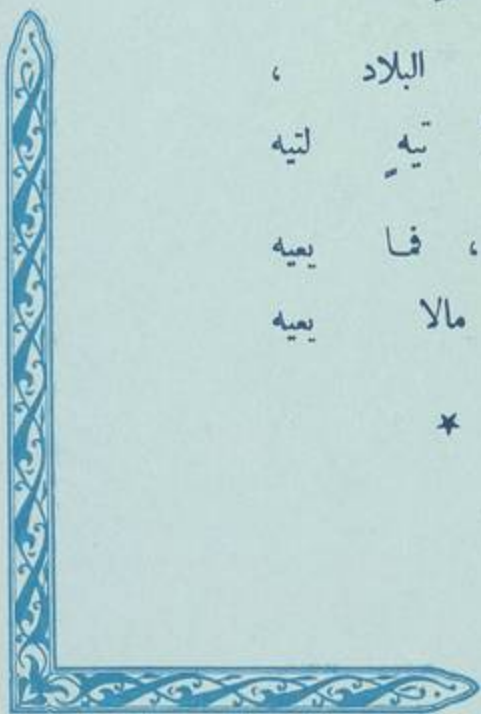 البلاد ،
تيهٍ لتيه
، فما يعيه
مالا يعيه
★